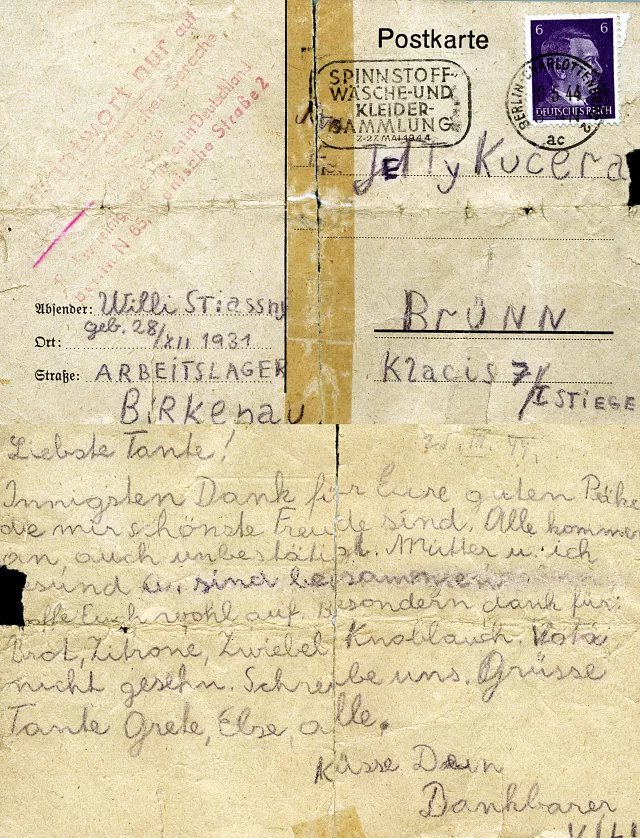 Antwort nur auf
Postkarte
6 6
DEUTSCHES REICH
BERLIN-CHARLOTTENBURG 2
5.44
ac
SPINNSTOFF-
WÄSCHE-UND
KLEIDER-
SAMMLUNG
7.-27. MAI 1944
in Deutschland
Berlin N 65, Iranische Straße 2
Jelly Kucera
E
Absender: Willi Stiassny
geb. 28/XII 1931
Ort:
Straße: ARBEITSLAGER
BIRKENAU
BRÜNN
Klacis 7/
/I STIEGE
Liebste Tante!
Innigsten Dank für Eure guten Päke
die mir schönste Freude sind. Alle kommen
an, auch unbestätigt. Mutter u. ich
gesund u. sind beisammen
hoffe Euch wohl auf. Besondern dank für
Brot, Zitrone, Zwiebel Knoblauch. Vota
nicht gesehn. Schreibe uns. Grüsse
Tante Grete, Else, alle.
Küsse Dein
Dankbarer